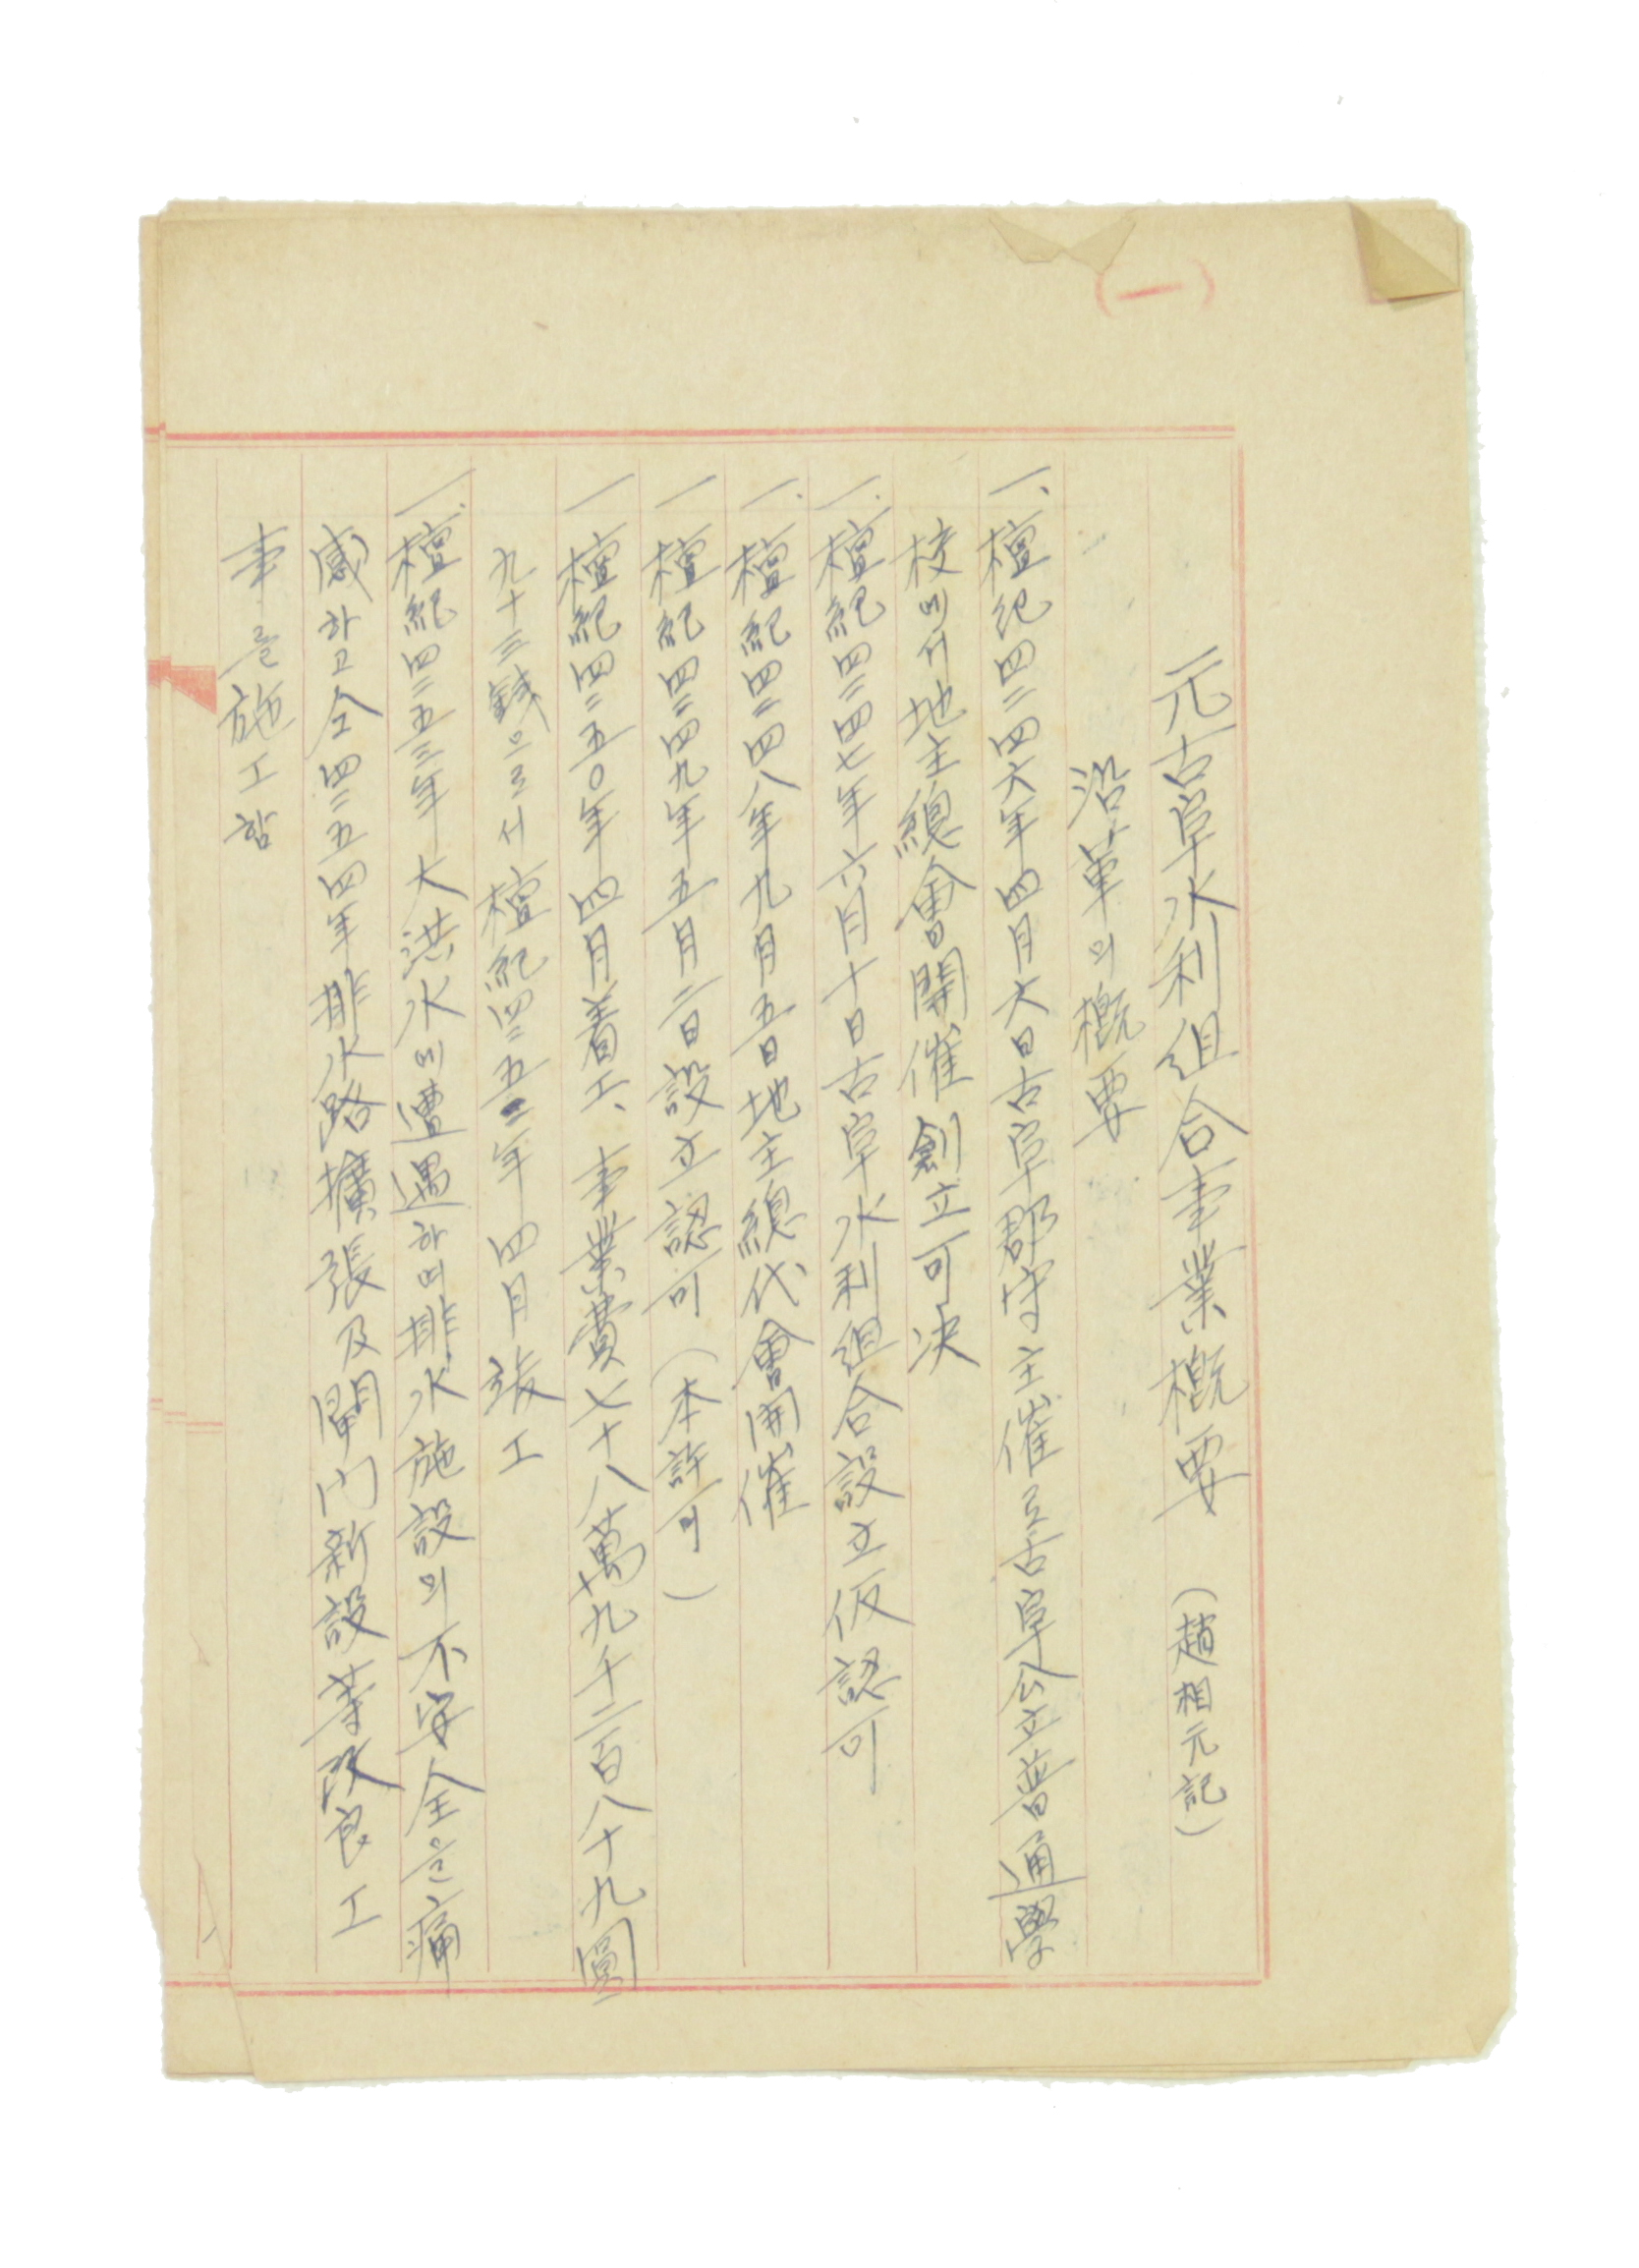 (一)
元古阜水利組合事業概要 (趙相元記)
沿革의 概要
一、檀紀四二四六年四月六日古阜郡守主催로古阜公立普通學
校에서地主總會開催創立可決
一. 檀紀四二四七年六月十日古阜水利組合設立仮認可
一. 檀紀四二四八年九月五日地主總代會開催
一 檀紀四二四九年五月二日設立認可 (本許可)
一 檀紀四二五〇年四月着工、事業費七十八萬九千二百八十九圓
九十三錢으로서 檀紀四二五二年四月竣工
一. 檀紀四二五三年 大洪水에遭遇하며排水施設의不安全을痛
感하고仝四二五四年排水路擴張及閘門新設等改良工
事를施工함